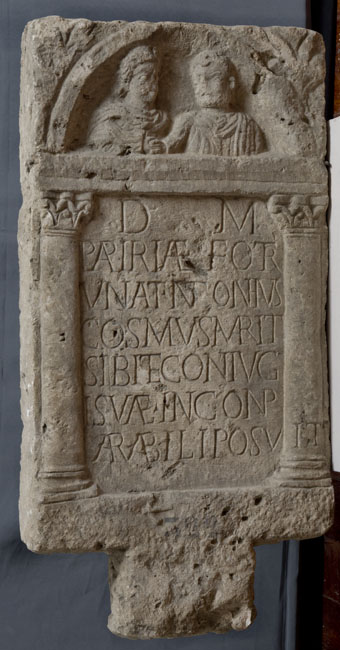 D M
PATRIAE FORT
VNATE NTONIVS
COSMVS MARIT
SIBI ET CONIVG
I SVAE INCONP
ARABILI POSVIT